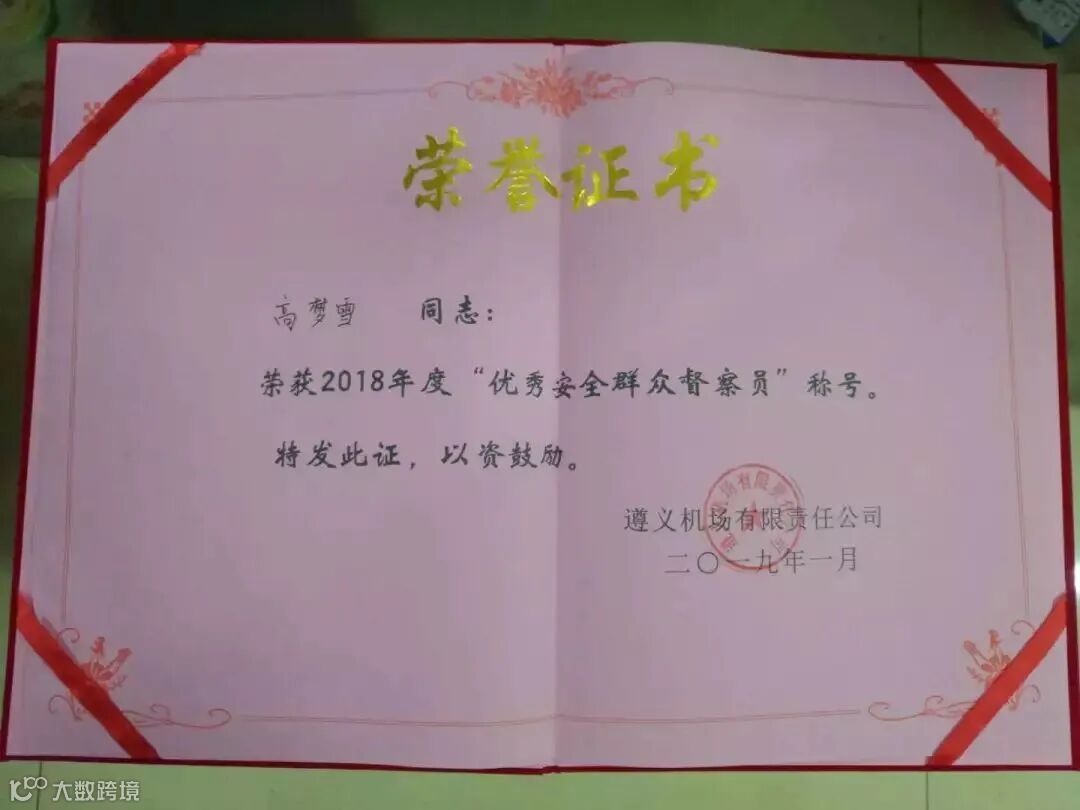 荣誉证书
高梦雪 同志：
荣获2018年度“优秀安全群众督察员”称号。
特发此证，以资鼓励。
遵义机场有限责任公司
二〇一九年一月
大数跨境